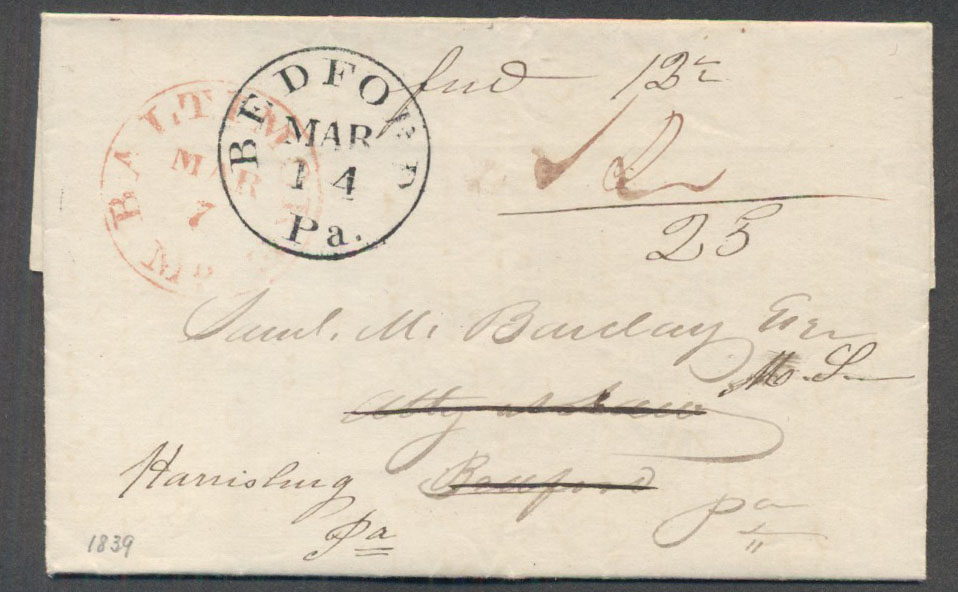 BALTIMORE
MAR
7
MD
BEDFORD
MAR
14
Pa.
fwd 12½
12½
25
Saml. M. Barclay Esqr
M.S.
Atty at Law
Bedford
Harrisburg
Pa
Pa
1839